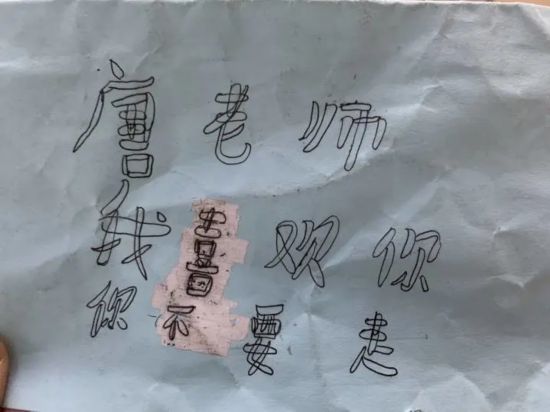 唐老师
我喜欢你
你不要走